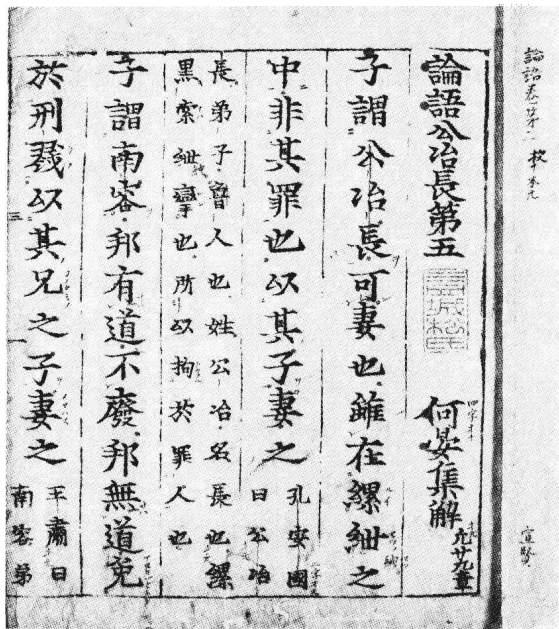 論語卷第
宣賢
論語公冶長第五 何晏集解 凡廿九章
子謂公冶長可妻也雖在縲紲之
中非其罪也以其子妻之 孔安國
曰公冶
長弟子魯人也姓公冶名長也縲
黒索紲攣也所以拘於罪人也
子謂南容邦有道不廢邦無道免
於刑戮以其兄之子妻之 王肅曰
南容弟